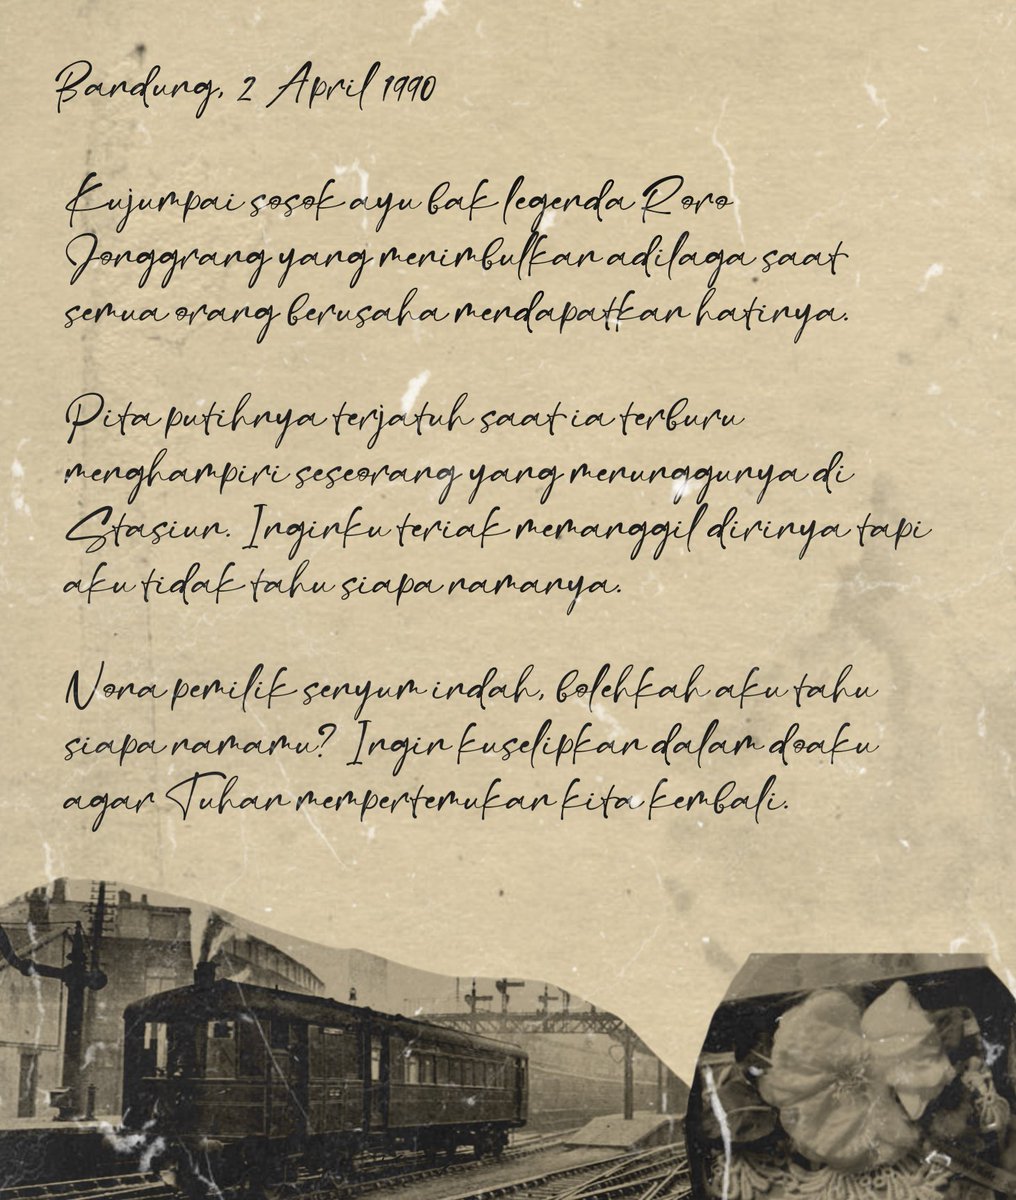 Bandung, 2 April 1990
Kujumpai sosok ayu bak legenda Roro
Jonggrang yang menimbulkan adilaga saat
semua orang berusaha mendapatkan hatinya.
Pita putihnya terjatuh saat ia terburu
menghampiri seseorang yang menunggunya di
Stasiun. Inginku teriak memanggil dirinya tapi
aku tidak tahu siapa namanya.
Nona pemilik senyum indah, bolehkah aku tahu
siapa namamu? Ingin kuselipkan dalam doaku
agar Tuhan mempertemukan kita kembali.